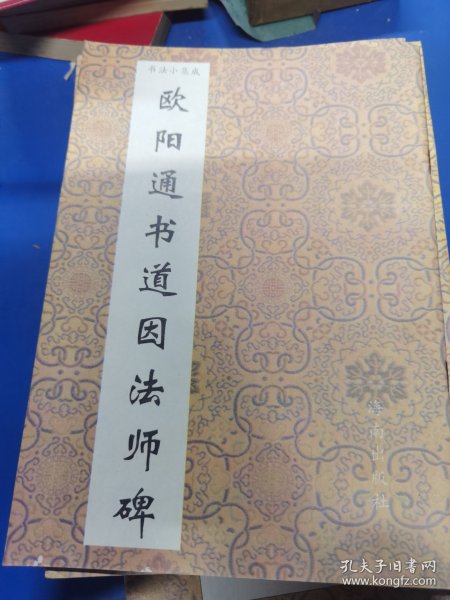 书法小集成
欧阳通书道因法师碑
海南出版社
孔夫子旧书网
www.kongfz.com